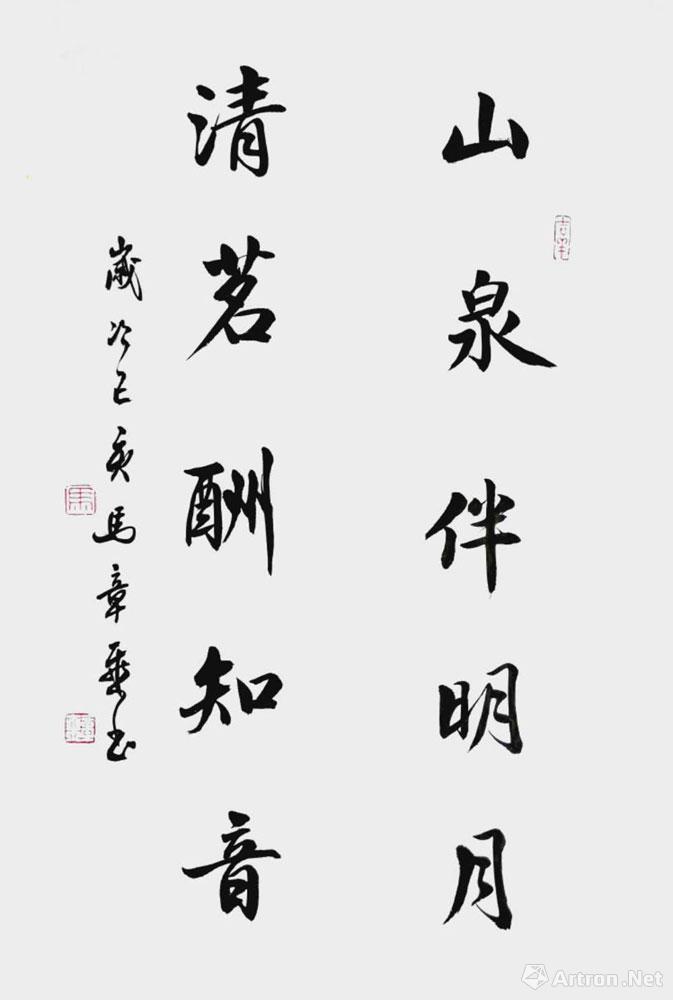 山泉伴明月
清茗酬知音
歲次己亥馬章乘書
Artron.Net